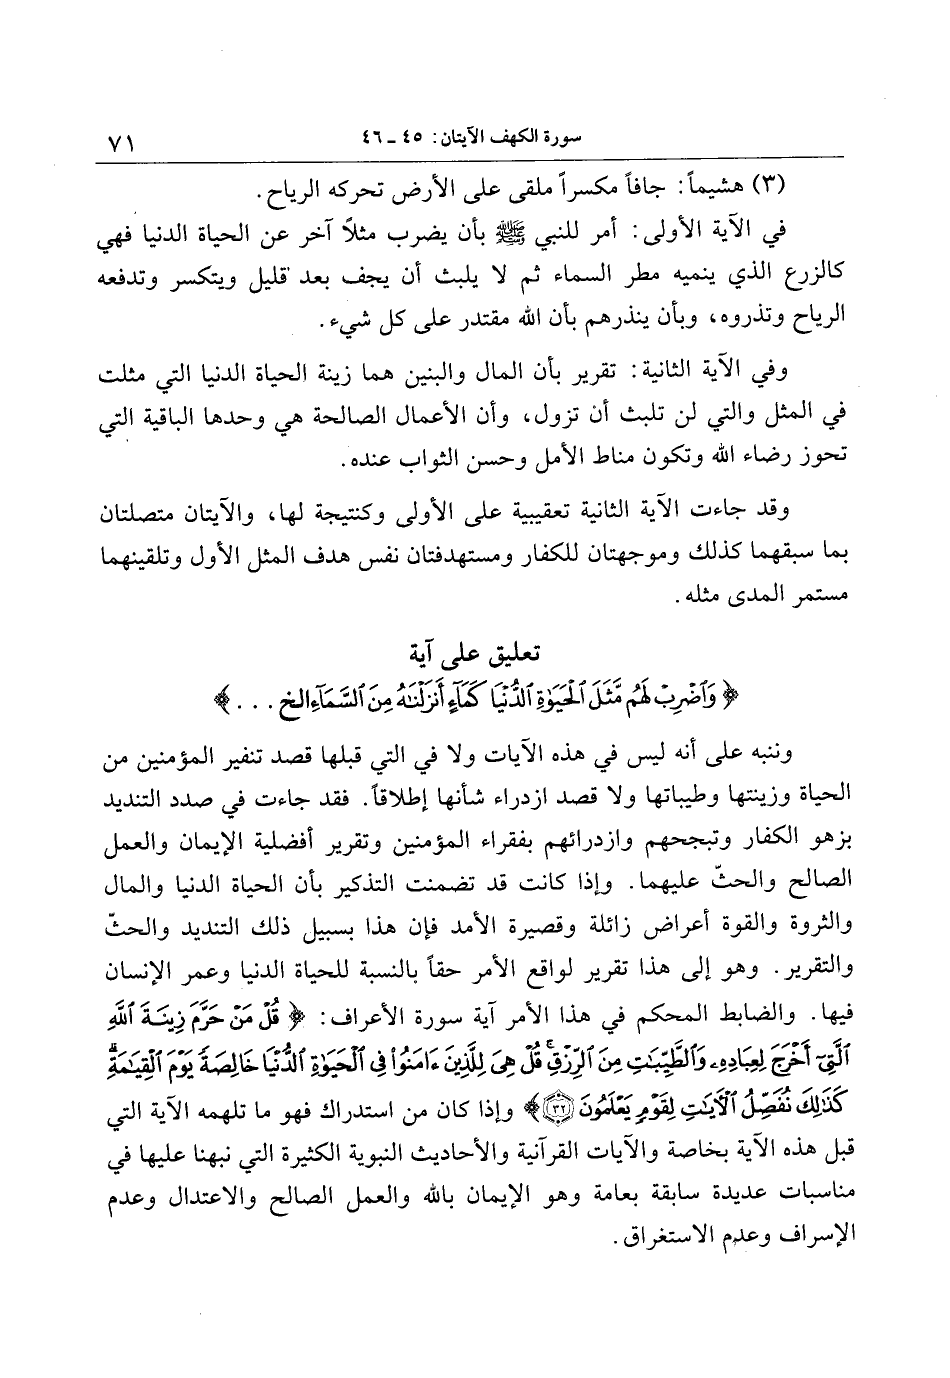 سورة الكهف الآيتان: ٤٥ ـ ٤٦ ٧١
(٣) هشيماً: جافاً مكسراً ملقى على الأرض تحركه الرياح.
في الآية الأولى: أمر للنبي ﷺ بأن يضرب مثلاً آخر عن الحياة الدنيا فهي
كالزرع الذي ينميه مطر السماء ثم لا يلبث أن يجف بعد قليل ويتكسر وتدفعه
الرياح وتذروه، وبأن ينذرهم بأن الله مقتدر على كل شيء.
وفي الآية الثانية: تقرير بأن المال والبنين هما زينة الحياة الدنيا التي مثلت
في المثل والتي لن تلبث أن تزول، وأن الأعمال الصالحة هي وحدها الباقية التي
تحوز رضاء الله وتكون مناط الأمل وحسن الثواب عنده.
وقد جاءت الآية الثانية تعقيبية على الأولى وكنتيجة لها، والآيتان متصلتان
بما سبقهما كذلك وموجهتان للكفار ومستهدفتان نفس هدف المثل الأول وتلقينهما
مستمر المدى مثله.
تعليق على آية
﴿وَٱضْرِبْ لَهُم مَّثَلَ ٱلْحَيَوٰةِ ٱلدُّنْيَا كَمَآءٍ أَنزَلْنَٰهُ مِنَ ٱلسَّمَآءِ الخ . . .﴾
وننبه على أنه ليس في هذه الآيات ولا في التي قبلها قصد تنفير المؤمنين من
الحياة وزينتها وطيباتها ولا قصد ازدراء شأنها إطلاقاً. فقد جاءت في صدد التنديد
بزهو الكفار وتبجحهم وازدرائهم بفقراء المؤمنين وتقرير أفضلية الإيمان والعمل
الصالح والحثّ عليهما. وإذا كانت قد تضمنت التذكير بأن الحياة الدنيا والمال
والثروة والقوة أعراض زائلة وقصيرة الأمد فإن هذا بسبيل ذلك التنديد والحثّ
والتقرير. وهو إلى هذا تقرير لواقع الأمر حقاً بالنسبة للحياة الدنيا وعمر الإنسان
فيها. والضابط المحكم في هذا الأمر آية سورة الأعراف: ﴿قُلْ مَنْ حَرَّمَ زِينَةَ ٱللَّهِ
ٱلَّتِىٓ أَخْرَجَ لِعِبَادِهِۦ وَٱلطَّيِّبَٰتِ مِنَ ٱلرِّزْقِ ۚ قُلْ هِىَ لِلَّذِينَ ءَامَنُوا۟ فِى ٱلْحَيَوٰةِ ٱلدُّنْيَا خَالِصَةً يَوْمَ ٱلْقِيَٰمَةِ ۗ
كَذَٰلِكَ نُفَصِّلُ ٱلْءَايَٰتِ لِقَوْمٍ يَعْلَمُونَ ٣٢﴾ وإذا كان من استدراك فهو ما تلهمه الآية التي
قبل هذه الآية بخاصة والآيات القرآنية والأحاديث النبوية الكثيرة التي نبهنا عليها في
مناسبات عديدة سابقة بعامة وهو الإيمان بالله والعمل الصالح والاعتدال وعدم
الإسراف وعدم الاستغراق.